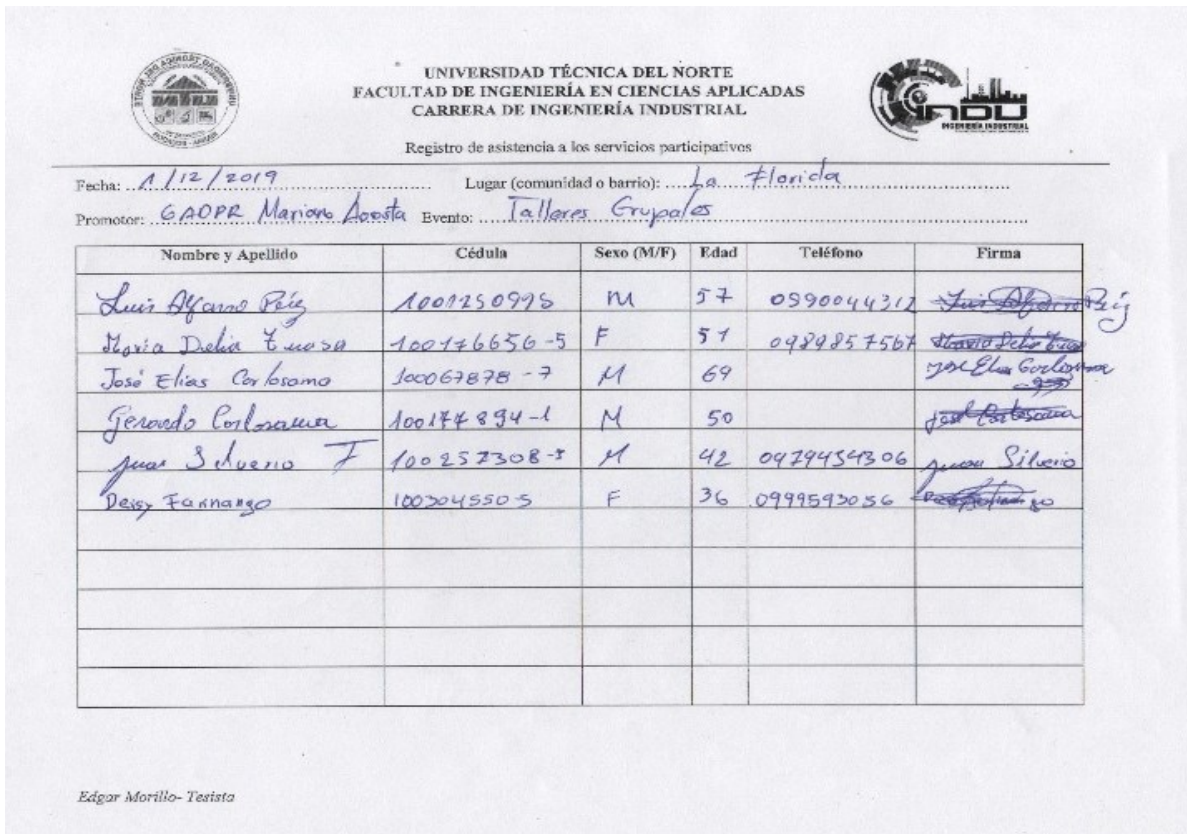 UNIVERSIDAD TÉCNICA DEL NORTE
FACULTAD DE INGENIERÍA EN CIENCIAS APLICADAS
CARRERA DE INGENIERÍA INDUSTRIAL
INDU
INGENIERÍA INDUSTRIAL
Registro de asistencia a los servicios participativos
Fecha: 1/12/2019 Lugar (comunidad o barrio): La Florida
Promotor: GADPR Mariano Acosta Evento: Talleres Grupales
Nombre y Apellido Cédula Sexo (M/F) Edad Teléfono Firma
Luis Alfaro Peíg 1001250995 M 57 0990044312 Luis Alfaro Peíg
María Delia 100176656-5 F 51 0989857567 María Delia
José Elías Carlosama 100067878-7 M 69 José Elías Carlosama
Gerardo Carlosama 100177894-1 M 50 Carlosama
Juan Silverio F 100257308-5 M 42 0979454306 Juan Silverio
Deisy Farinango 100304550-5 F 36 0999593056
Edgar Morillo- Tesista